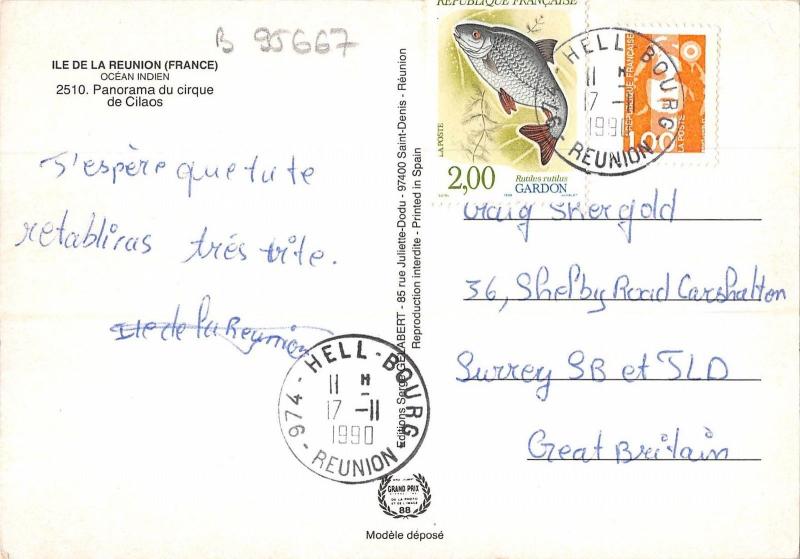 B 95667
ILE DE LA REUNION (FRANCE)
OCÉAN INDIEN
2510. Panorama du cirque
de Cilaos
J'espère que tu te
retabliras très vite.
Ile de la Reunion
HELL-BOURG
11 H
17 -11
1990
974 - REUNION
Editions Serge GELABERT - 85 rue Juliette-Dodu - 97400 Saint-Denis - Réunion
Reproduction interdite - Printed in Spain
GRAND PRIX
DE LA PHOTO
ET DE L'IMAGE
88
Modèle déposé
REPUBLIQUE FRANÇAISE
LA POSTE
2,00
Rutilus rutilus
GARDON
HELL-BOURG
11 H
17 -
1990
974 - REUNION
REPUBLIQUE FRANÇAISE
1,00
LA POSTE
Craig Shergold
36, Shelby Road Carshalton
Surrey SB et JLD
Great Britain